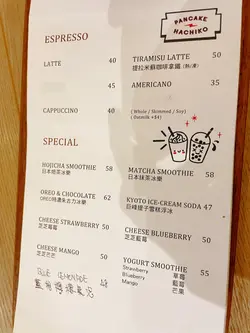 PANCAKE
HACHIKO
ESPRESSO
LATTE 40
TIRAMISU LATTE 50
提拉米蘇咖啡拿鐵 (熱/凍)
AMERICANO 35
CAPPUCCINO 40
(Whole / Skimmed / Soy)
(Oatmilk +$4)
SPECIAL
HOJICHA SMOOTHIE 58
日本焙茶冰樂
MATCHA SMOOTHIE 58
日本抹茶冰樂
OREO & CHOCOLATE 62
OREO特濃朱古力冰樂
KYOTO ICE-CREAM SODA 47
巨峰提子雪糕浮冰
CHEESE STRAWBERRY 50
芝芝士莓
CHEESE BLUEBERRY 50
芝芝藍莓
CHEESE MANGO 50
芝芝芒芒
YOGURT SMOOTHIE 55
Strawberry 草莓
Blueberry 藍莓
Mango 芒果
BLUE LEMONADE 48